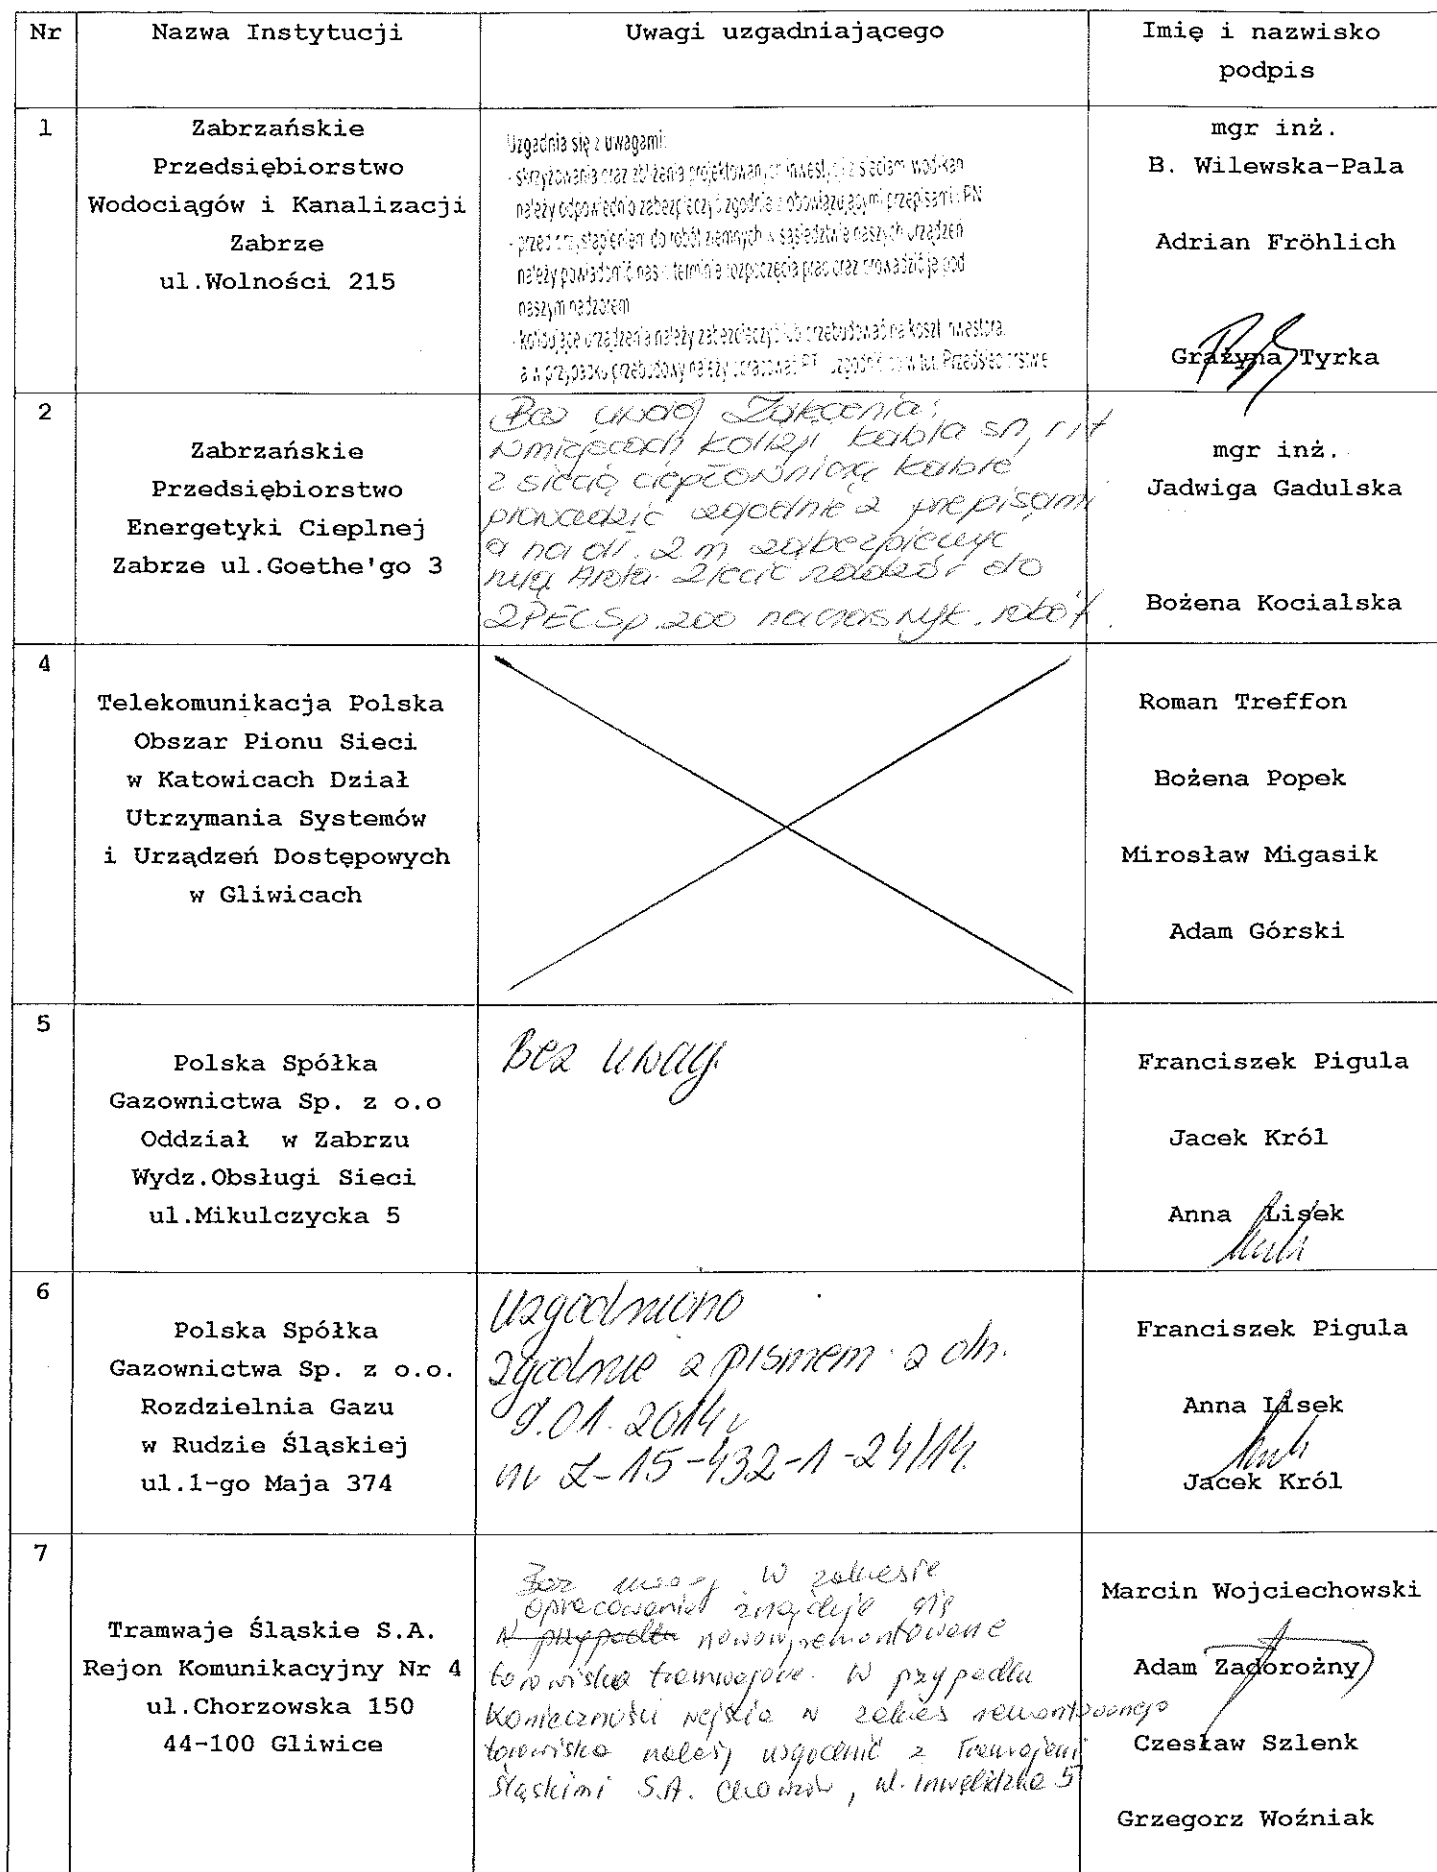 Nr Nazwa Instytucji Uwagi uzgadniającego Imię i nazwisko
podpis
1
Zabrzańskie
Przedsiębiorstwo
Wodociągów i Kanalizacji
Zabrze
ul.Wolności 215
Uzgadnia się z uwagami:
- skrzyżowania oraz zbliżenia projektowanych inwestycji z sieciami wod-kan
należy odpowiednio zabezpieczyć zgodnie z obowiązującymi przepisami i PN
- przed przystąpieniem do robót ziemnych w sąsiedztwie naszych urządzeń
należy powiadomić nas o terminie rozpoczęcia prac oraz prowadzić je pod
naszym nadzorem
- kolidujące urządzenia należy zabezpieczyć lub przebudować na koszt inwestora,
a w przypadku przebudowy należy opracować PT i uzgodnić go w tut. Przedsiębiorstwie
mgr inż.
B. Wilewska-Pala
Adrian Fröhlich
Grażyna Tyrka
2
Zabrzańskie
Przedsiębiorstwo
Energetyki Cieplnej
Zabrze ul.Goethe'go 3
Bez uwag Zalecenia:
w miejscach kolizji kabla sn,
z siecią ciepłowniczą kable
prowadzić zgodnie z przepisami
a na dł. 2 m zabezpieczyć
rurą Arota. Zlecić nadzór do
ZPEC Sp. zoo na czas wyk. robót.
mgr inż.
Jadwiga Gadulska
Bożena Kocialska
4
Telekomunikacja Polska
Obszar Pionu Sieci
w Katowicach Dział
Utrzymania Systemów
i Urządzeń Dostępowych
w Gliwicach
Roman Treffon
Bożena Popek
Mirosław Migasik
Adam Górski
5
Polska Spółka
Gazownictwa Sp. z o.o
Oddział w Zabrzu
Wydz.Obsługi Sieci
ul.Mikulczycka 5
Bez uwag.
Franciszek Pigula
Jacek Król
Anna Lisek
6
Polska Spółka
Gazownictwa Sp. z o.o.
Rozdzielnia Gazu
w Rudzie Śląskiej
ul.1-go Maja 374
Uzgodniono
zgodnie z pismem z dn.
9.01.2014r
nr Z-15-432-1-24/14.
Franciszek Pigula
Anna Lisek
Jacek Król
7
Tramwaje Śląskie S.A.
Rejon Komunikacyjny Nr 4
ul.Chorzowska 150
44-100 Gliwice
Bez uwag. W zakresie
opracowania znajduje się
w przypadku nowowyremontowane
torowisko tramwajowe. W przypadku
konieczności wejścia w zakres remontowanego
torowiska należy uzgodnić z Tramwajami
Śląskimi S.A. Chorzów, ul. Inwalidzka 5
Marcin Wojciechowski
Adam Zadorożny
Czesław Szlenk
Grzegorz Woźniak